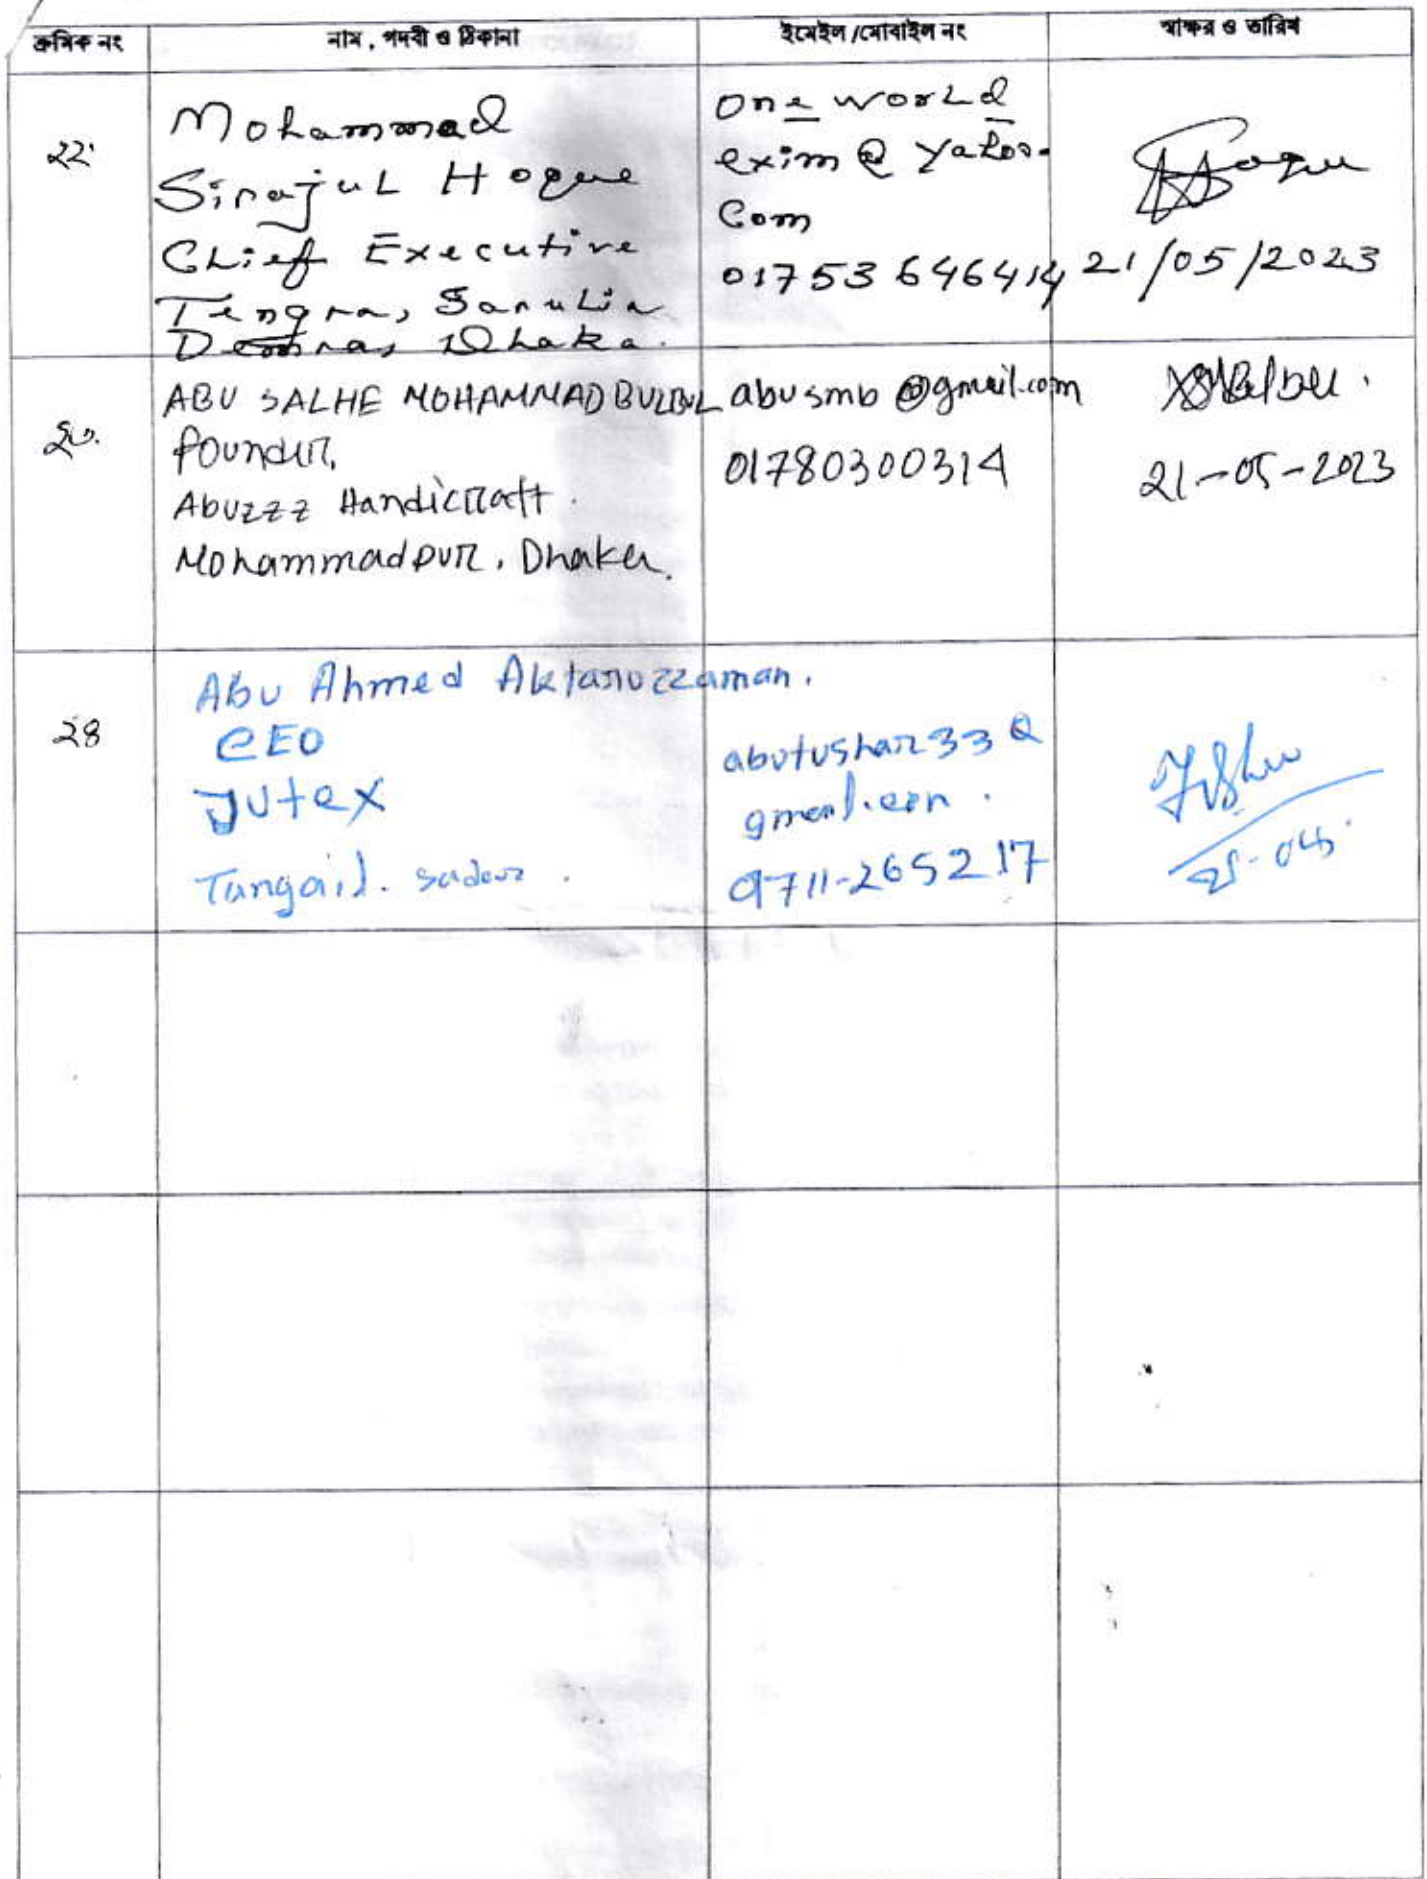 ক্রমিক নং
নাম, পদবী ও ঠিকানা
ইমেইল/মোবাইল নং
স্বাক্ষর ও তারিখ
২২
Mohammad
Sirajul Hoque
Chief Executive
Tengra, Sarulia
Demra, Dhaka.
one world
exim@yahoo.
Com
01753 646414
Hoque
21/05/2023
২৩.
ABU SALHE MOHAMMAD BULBUL
Founder,
Abuzzz Handicraft.
Mohammadpur, Dhaka.
abusmb@gmail.com
01780300314
21-05-2023
২৪
Abu Ahmed Aktaruzzaman.
CEO
Jutex
Tangail. sador.
abutushar33@
gmail.com.
01711-265217